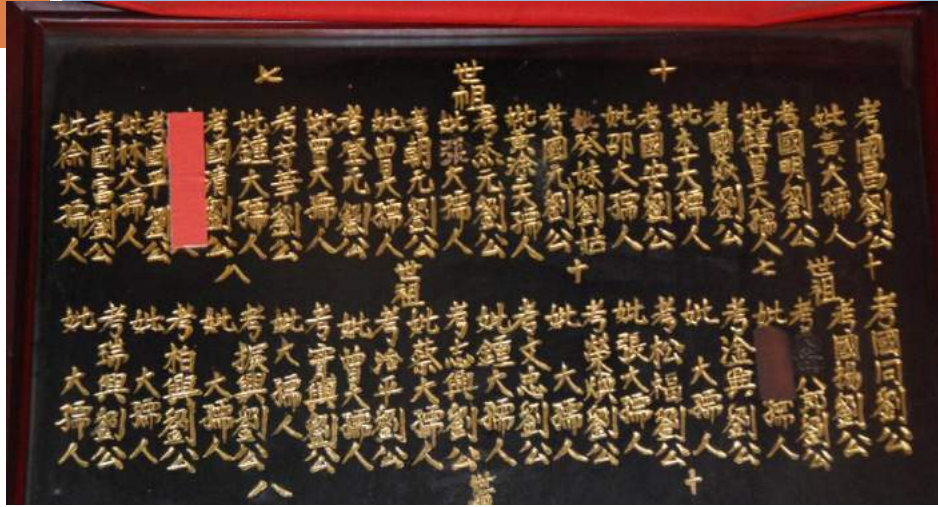 十世祖七
考國昌劉公
妣黃大孺人
考國明劉公
妣鍾曾大孺人
考國劉公
妣李大孺人
考國安劉公
妣邵大孺人
癸妹姑
考國元劉公
妣黃涂大孺人
考杰元劉公
妣張大孺人
考朝元劉公
妣曾大孺人
考登元劉公
妣曾大孺人
考芳華劉公
妣鍾大孺人
考國清劉公
考國平劉公
妣林大孺人
考國富劉公
妣徐大孺人
十世祖七
考國同劉公
考國揚劉公
考八郎劉公
妣孺人
十世祖八
考淦興劉公
妣大孺人
考松福劉公
妣張大孺人
考榮煥劉公
妣大孺人
考文忠劉公
妣鍾大孺人
考志興劉公
妣蔡大孺人
考治平劉公
妣曾大孺人
考寧興劉公
妣大孺人
考振興劉公
妣大孺人
考柏興劉公
妣大孺人
考瑞興劉公
妣大孺人
十世八